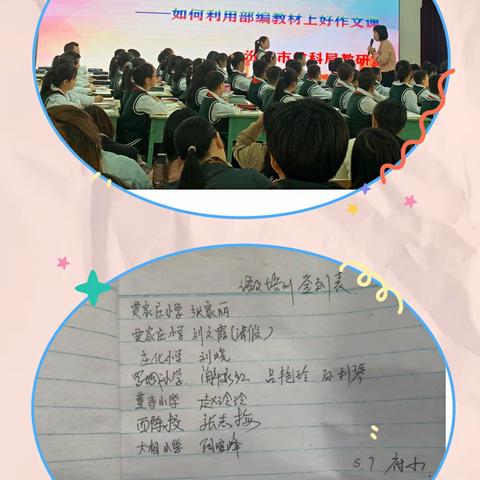 ——如何利用部编教材上好作文课
汾 市 科局教研
语文培训 签到表
贾家庄小学 张家丽
贾家庄小学 刘文霞(请假)
庄化小学 刘晓
罗城小学 吕艳玲 孙利琴
董寺小学 赵玲玲
西陈家 张志梅
大相小学
5.7 府小